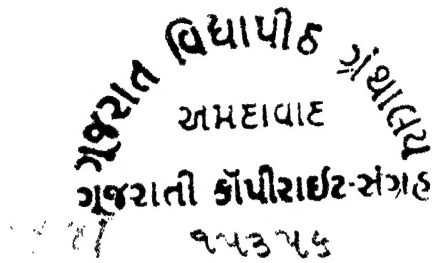 ગૂજરાત વિદ્યાપીઠ ગ્રંથાલય
અમદાવાદ
ગૂજરાતી કૉપીરાઈટ-સંગ્રહ
૧૫૩૫૬